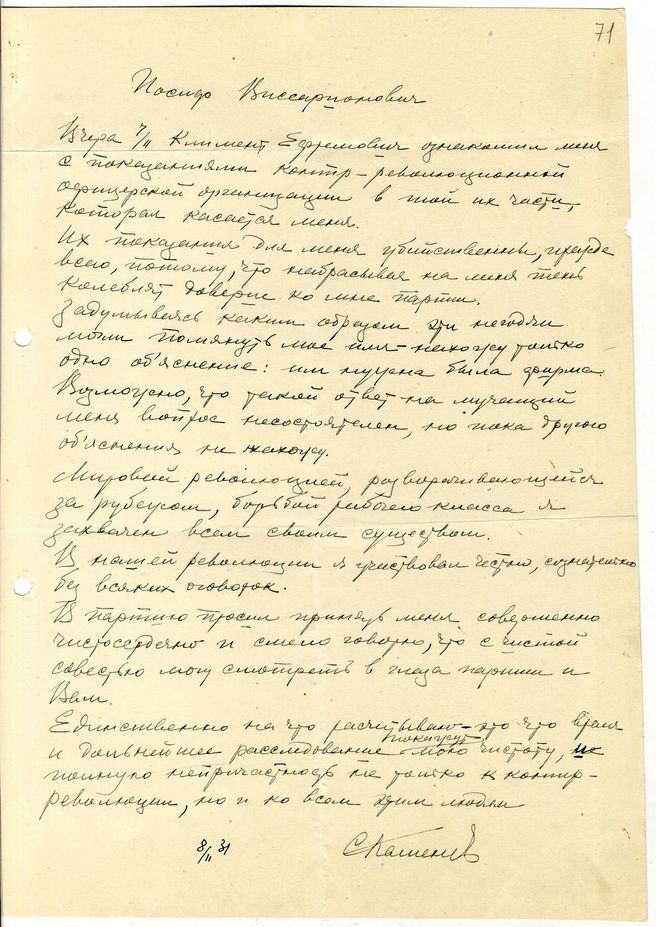 71
Иосиф Виссарионович
Вчера 7/II Климент Ефремович ознакомил меня
с показаниями контр-революционной
офицерской организации в той их части,
которая касается меня.
Их показания для меня убийственны, прежде
всего, потому, что набрасывая на меня тень
колеблят доверие ко мне партии.
Задумываясь каким образом эти негодяи
могли помянуть мое имя – нахожу только
одно об'яснение: им нужна была фирма.
Возможно, что такой ответ на мучащий
меня вопрос несостоятелен, но пока другого
об'яснения не нахожу.
Мировой революцией, разворачивающейся
за рубежом, борьбой рабочего класса я
захвачен всем своим существом.
В нашей революции я участвовал честно, сознательно
без всяких оговорок.
В партию просил принять меня совершенно
чистосердечно и смело говорю, что с чистой
совестью могу смотреть в глаза партии и
Вам.
Единственно на что расчитываю – это что время
и дальнейшее расследование покажут мою чистоту, и
полную непричастность не только к контр-
революции, но и ко всем этим людям
8/II 31 С Каменев